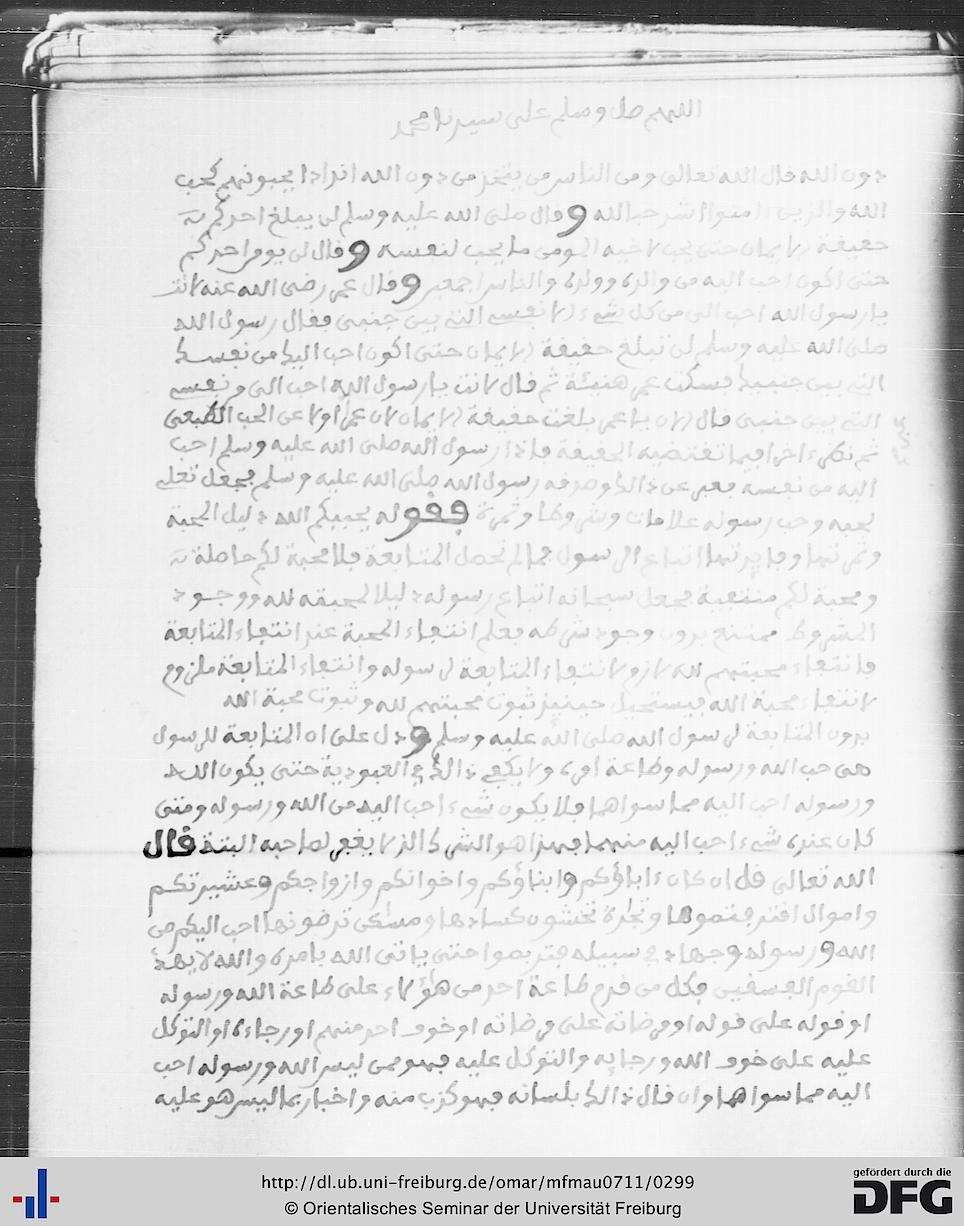 اللهم صل وسلم على سيدنا محمد
دون الله قال الله تعالى ومن الناس من يتخذ من دون الله اندادا يحبونهم كحب
الله والذين ءامنوا اشد حبا لله وقال صلى الله عليه وسلم لن يبلغ احدكم
حقيقة الايمان حتى يحب لاخيه المومن ما يحب لنفسه وقال لن يومن احدكم
حتى اكون احب اليه من والده وولده والناس اجمعين وقال عمر رضى الله عنه لانت
يا رسول الله احب الى من كل شىء الا نفسى التى بين جنبى فقال رسول الله
صلى الله عليه وسلم لن تبلغ حقيقة الايمان حتى اكون احب اليك من نفسك
التى بين جنبيك فسكت عمر هنيئة ثم قال لانت يا رسول الله احب الى من نفسى
التى بين جنبى قال الان يا عمر بلغت حقيقة الايمان لان عمر اولا عن الحب الطبعى
ثم نظر ءاخرا فيما تقتضيه الحقيقة فاذا رسول الله صلى الله عليه وسلم احب
اليه من نفسه فعبر عن ذالك وصدقه رسول الله صلى الله عليه وسلم فجعل تعلى
لحبه وحب رسوله علامات وشروطا وثمرة فقوله يحببكم الله دليل المحبة
وثمرتها وفايدتها اتباع الرسول فما لم تحصل المتابعة فلا محبة لكم حاصلة
ومحبة لكم منتفية فجعل سبحانه اتباع رسوله دليلا لمحبته لله ووجود
المشروط ممتنع بدون وجود شرطه فعلم انتفاء المحبة عند انتفاء المتابعة
فانتفاء محبتهم لله لازم لانتفاء المتابعة لرسوله وانتفاء المتابعة ملزوم
لانتفاء محبة الله فيستحيل حينئذ ثبوت محبتهم لله وثبوت محبة الله
بدون المتابعة لرسول الله صلى الله عليه وسلم ودل على ان المتابعة للرسول
هى حب الله ورسوله وطاعة امره ولا يكفى ذالك فى العبودية حتى يكون الله
ورسوله احب اليه مما سواهما فلا يكون شىء احب اليه من الله ورسوله ومتى
كان عنده شىء احب اليه منهما فهذا هو الشرك الذى لا يغفر لصاحبه البتة قال
الله تعالى قل ان كان ءاباؤكم وابناؤكم واخوانكم وازواجكم وعشيرتكم
واموال اقترفتموها وتجرة تخشون كسادها ومسكن ترضونها احب اليكم من
الله ورسوله وجهاد فى سبيله فتربصوا حتى ياتى الله بامره والله لا يهدى
القوم الفسقين فكل من قدم طاعة احد من هؤلاء على طاعة الله ورسوله
او قوله على قوله او مرضاته على مرضاته او خوف احد منهم او رجاءه او التوكل
عليه على خوف الله ورجايه والتوكل عليه فهو ممن ليس الله ورسوله احب
اليه مما سواهما وان قال ذالك بلسانه فهو كذب منه واخبار بما ليس هو عليه
http://dl.ub.uni-freiburg.de/omar/mfmau0711/0299
© Orientalisches Seminar der Universität Freiburg
gefördert durch die
DFG